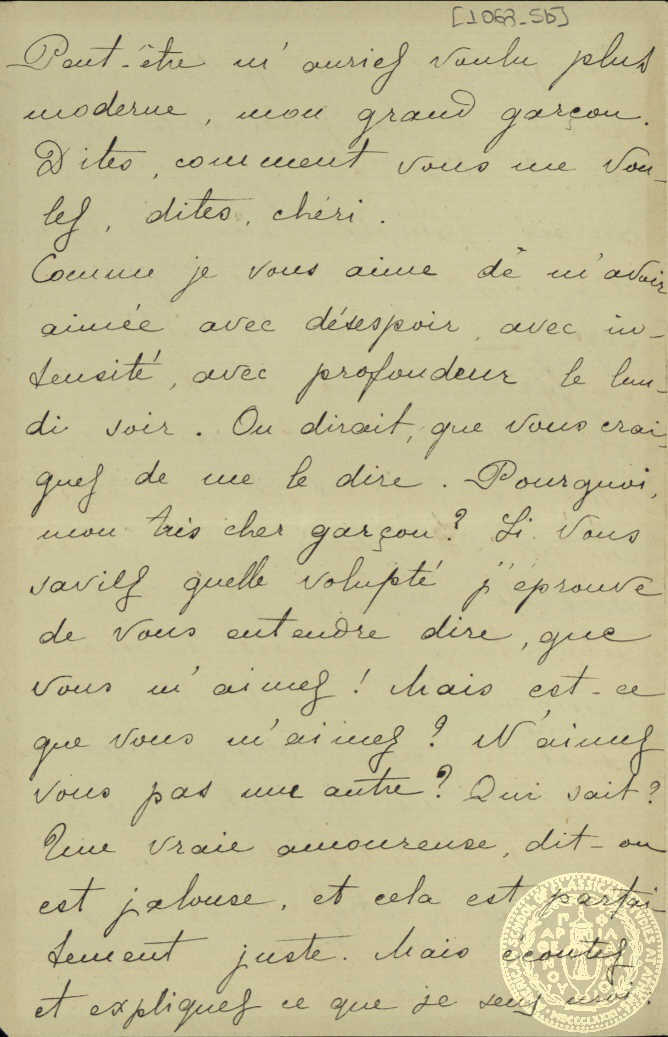 [1068-5b]
Peut-être m'auriez voulu plus
moderne, mon grand garçon.
Dites, comment vous me vou-
lez, dites, chéri.
Comme je vous aime de m'avoir
aimée avec désespoir, avec in-
tensité, avec profondeur le lun-
di soir. On dirait, que vous crai-
gnez de me le dire. Pourquoi,
mon très cher garçon? Si vous
saviez quelle volupté j'éprouve
de vous entendre dire, que
vous m'aimez! Mais est-ce
que vous m'aimez? N'aimez
vous pas une autre? Qui sait?
Une vraie amoureuse, dit-on
est jalouse, et cela est parfai-
tement juste. Mais écoutez
et expliquez ce que je sens moi.